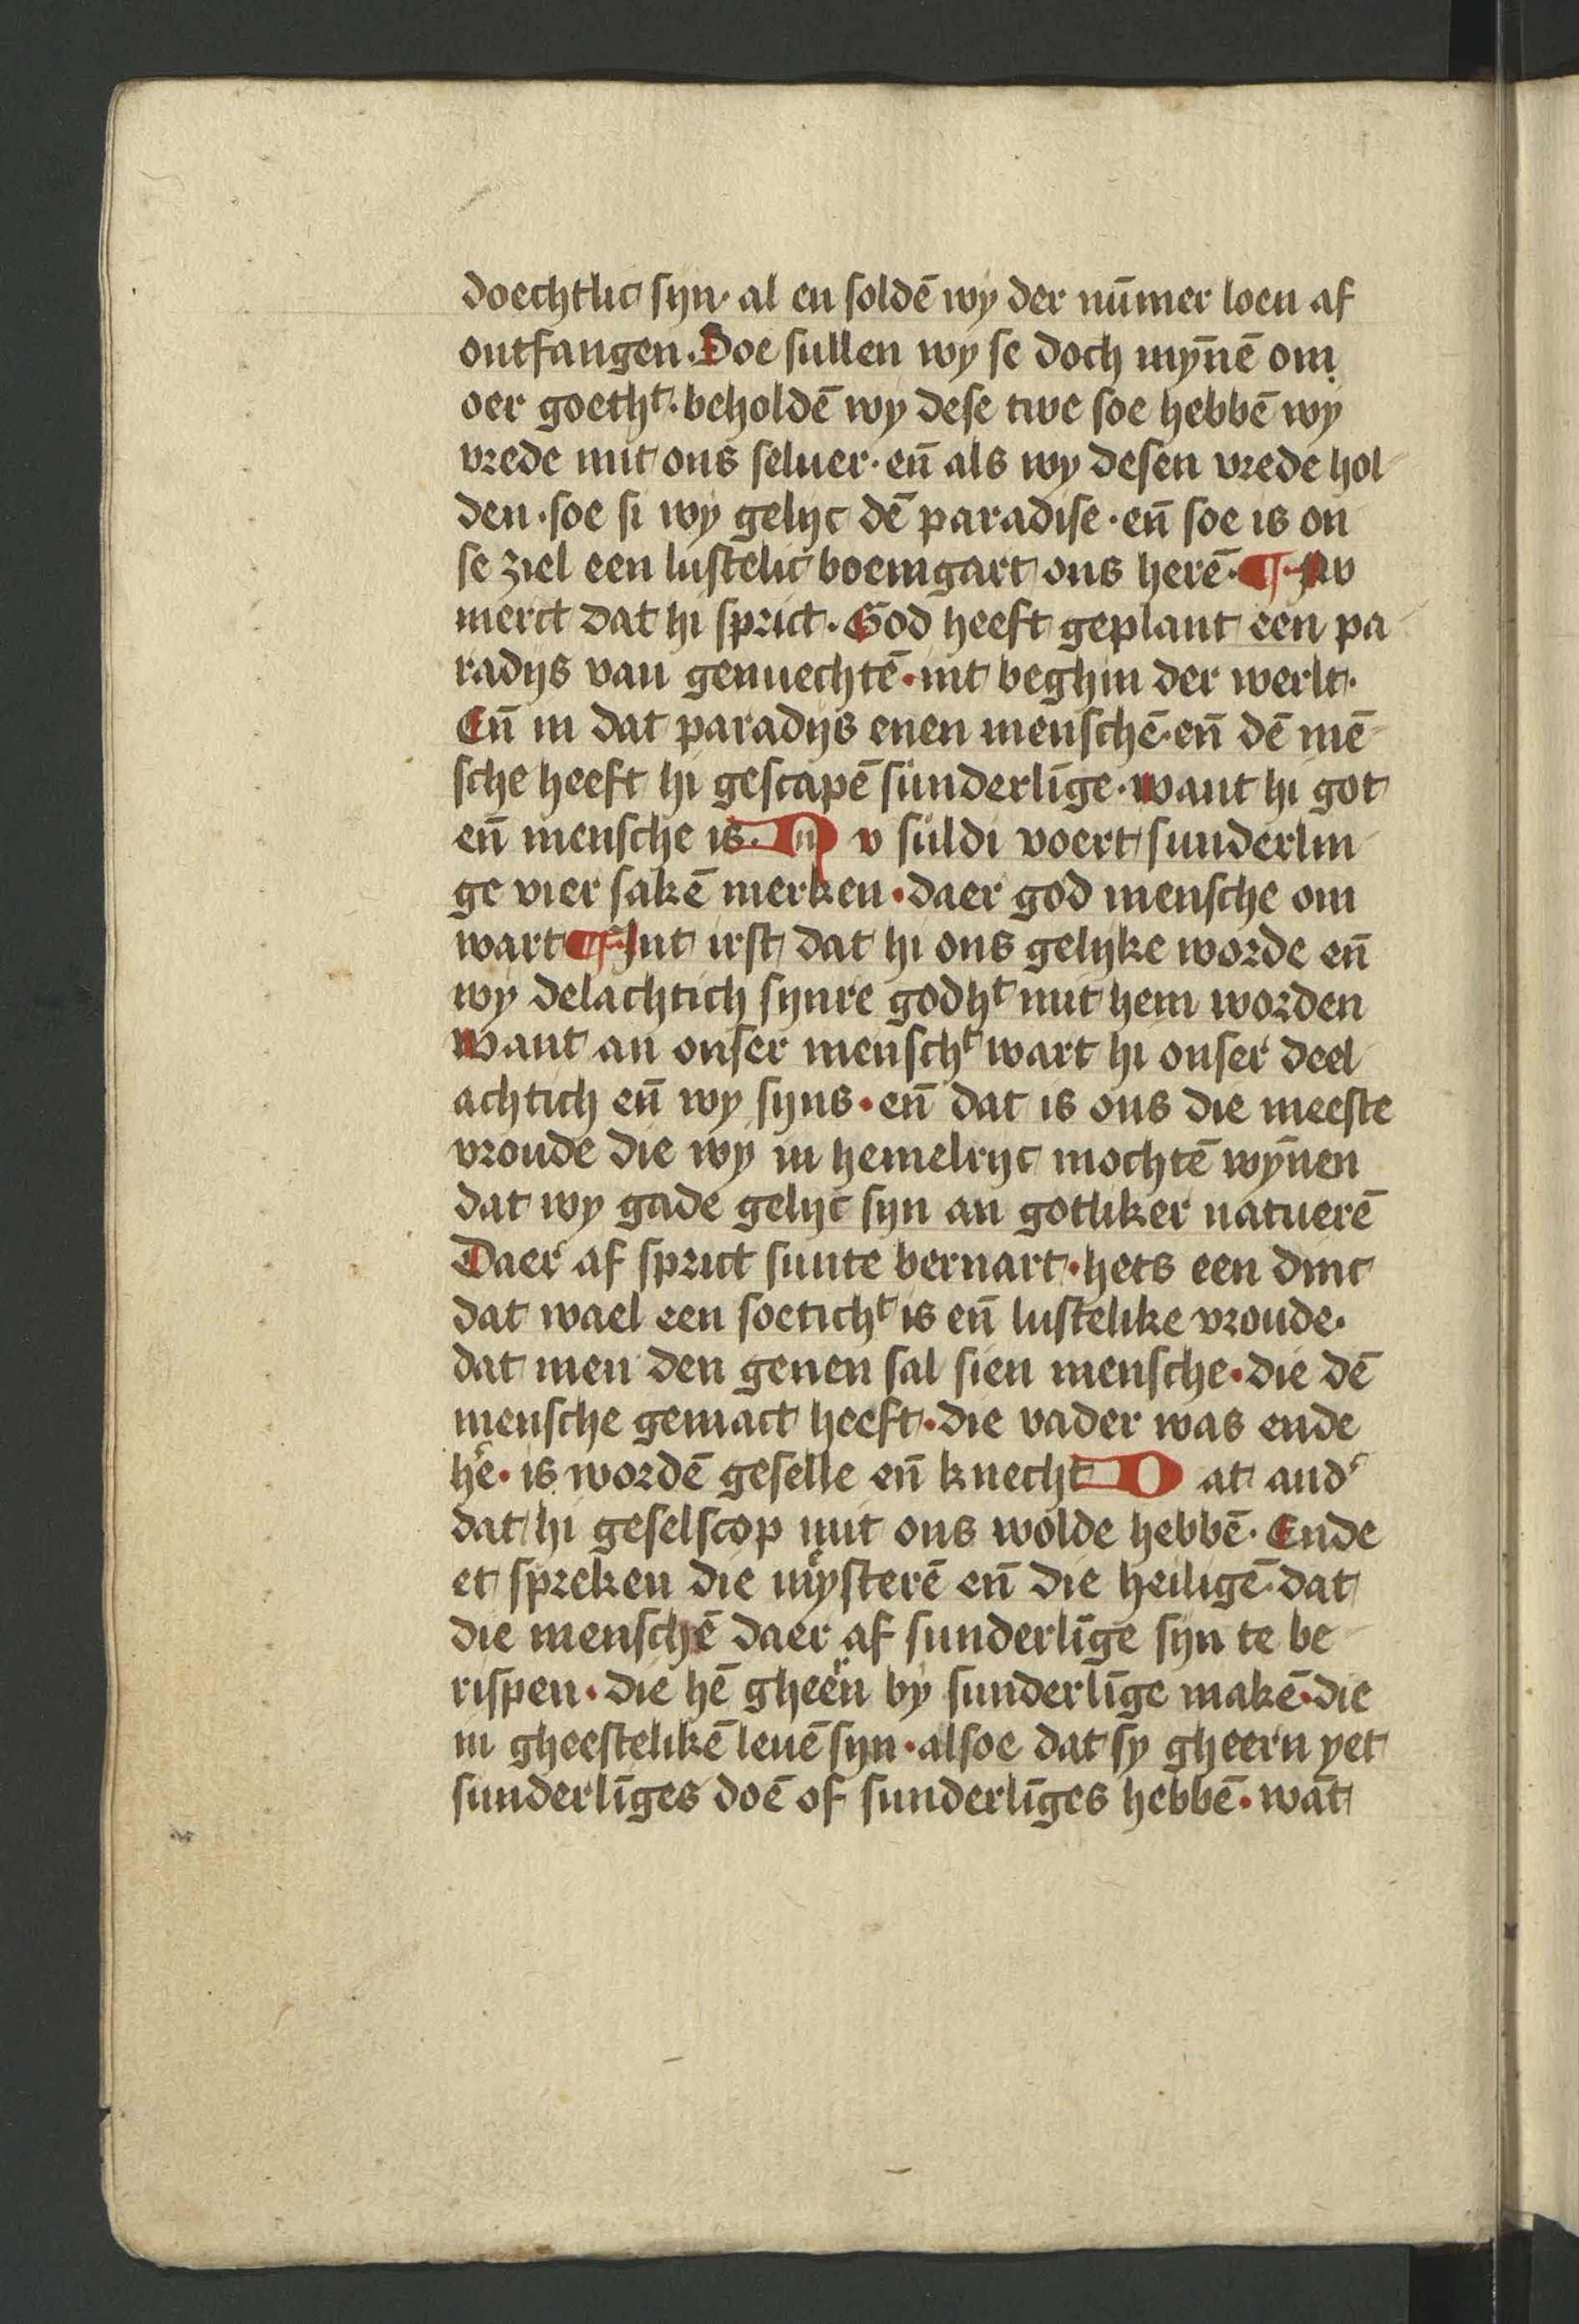 doechtlic syn· al en soldē wy der nūmer loen af
ontfangen. Soe sullen wy se doch mȳnē om
oer goethᵗ· beholdē wy dese twe soe hebbē wy
vrede mit ons seluer· en̄ als wy desen vrede hol
den· soe si wy gelijc dē paradise· en̄ soe is on
se ziel een lustelic boemgart ons herē· ¶ Nv
merct dat hi sprict. God heeft geplant een pa
radijs van genuechtē· int beghin der werlt·
En̄ in dat paradijs enen menschē· en̄ dē mē
sche heeft hi gescapē sunderlīge· want hi got
en̄ mensche is. N v suldi voert sunderlin
ge vier sakē merken· daer god mensche om
wart ¶ Int irst dat hi ons gelijke worde en̄
wy delachtich synre godhᵗ mit hem worden
Want an onser menschᵗ wart hi onser deel
achtich en̄ wy syns· en̄ dat is ons die meeste
vroude die wy in hemelrijc mochtē wȳnen
dat wy gade gelijc syn an gotliker natuerē
Daer af sprict sunte bernart· hets een dinc
dat wael een soetichᵗ is en̄ lustelike vroude·
dat men den genen sal sien mensche· die dē
mensche gemact heeft· die vader was ende
hēˀ· is wordē geselle en̄ knecht D at andˀ
dat hi geselscop mit ons wolde hebbē· Ende
et spreken die mẏsterē en̄ die heiligē· dat
die menschē daer af sunderlīge syn te be
rispen· die hē gheen by sunderlīge makē· die
in gheestelikē leuē syn· alsoe dat sy gheern yet
sunderlīges doē of sunderlīges hebbē· wāt